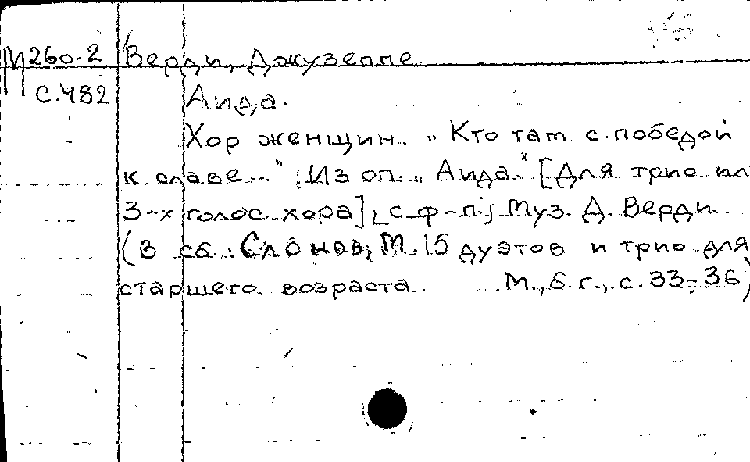 М 260-2 Верди, Джузеппе
С.482 Аида.
Хор женщин. „Кто там с победой
к славе..." Из оп. „Аида" [Для трио или
3-х голос. хора], с ф-п; Муз. Д. Верди
(в сб. Слонов, М. 15 дуэтов и трио для
старшего возраста М., б.г., с. 33-36)